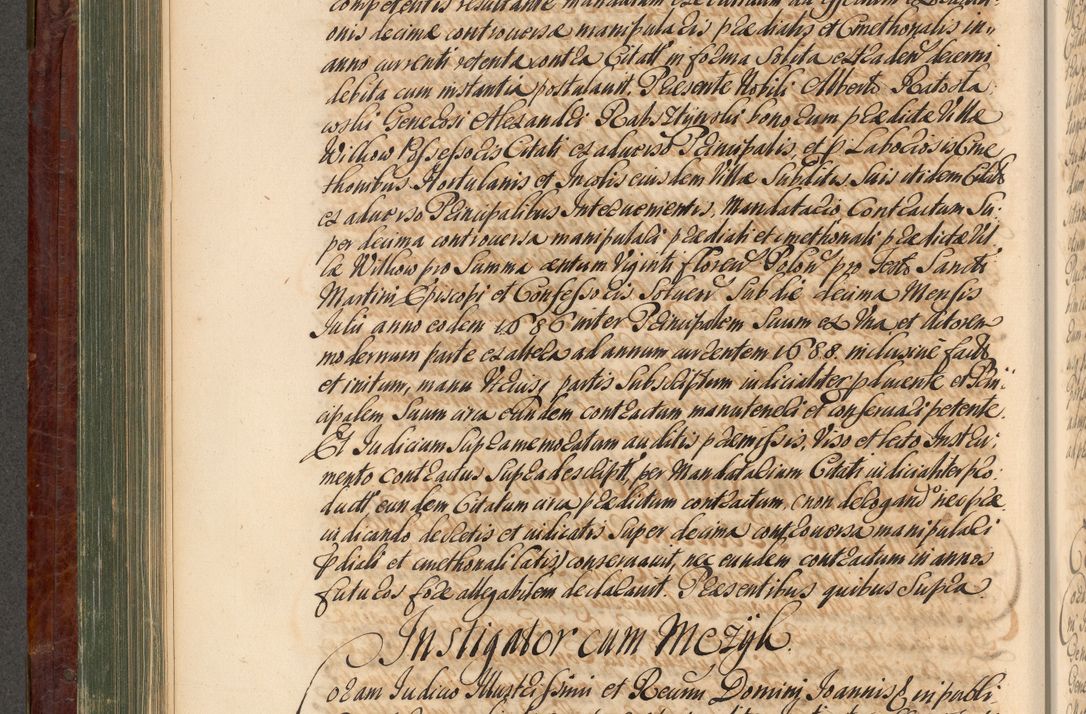 competentis resultante mandatum executivum ad effectum
onis decimæ controversæ manipularis prædialis et Cmethonalis in
anno currenti retenta contra Citatt in forma Solita extraden decerni
debita cum instantia postulavit. Præsente Nobili Alberto Ratosta
wski Generosi Alexandri Rabsztijnski bonorum prædictæ Villæ
Wilkow Possessoris Citati ex adverso Principalis, et p Laboriosis Cme
thonibus Hortulanis et Incolis eiusdem Villæ Subditis Suis itidem Citatis
ex adverso Principalibus Intervenientis, Mandatario Contractum Su:
per decima controversa manipulari prædiali et cmethonali prædictæ Vil
læ Wilkow pro Summa centum Viginti floren Polon pro festo Sancti
Martini Episcopi et Confessoris Solven Sub die decima Mensis
Julii anno eodem 1686 inter Principalem Suum ex Una et Actorem
modernum parte ex altera ad annum currentem 1688. inclusivè factt
et initum, manu Utriusq partis Subscriptum iudicialiter pducente et Prin
cipalem Suum circa eundem contractum manuteneri et conservari petente.
Et Iudicium Supramemoratum auditis præmissis, Viso et lecto Instru:
mento contractus Supradescriptt per Mandatarium Citati iudicialiter pro:
ductt, eundem Citatum circa prædictum contractum, (non derogando neq præ
iudicando decretis et iudicatis Super decima controversa manipulari
pdiali et cmethonali latis) conservavit, nec eundem contractum in annos
futuros fore allegabilem declaravit. Præsentibus quibus Supra.
Instigator cum Mczijk.
oram Iudicio Illustrissimi et Reverendissimi Domini Joannis in publi